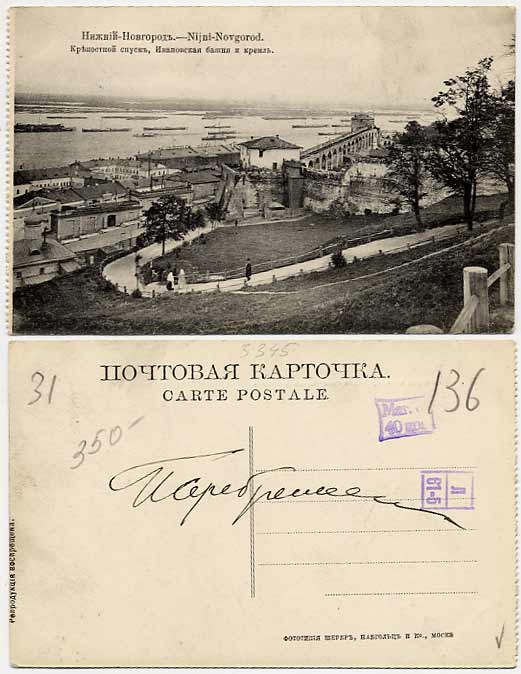 Нижній-Новгородъ.—Nijni-Novgorod.
Крѣпостной спускъ, Ивановская башня и кремль.
3345
ПОЧТОВАЯ КАРТОЧКА.
CARTE POSTALE.
31
136
350-
Маг.
40 коп.
Л
61-5
Репродукція воспрещена.
ФОТОТИПІЯ ШЕРЕРЪ, НАБГОЛЬЦЪ И Ко., МОСКВА